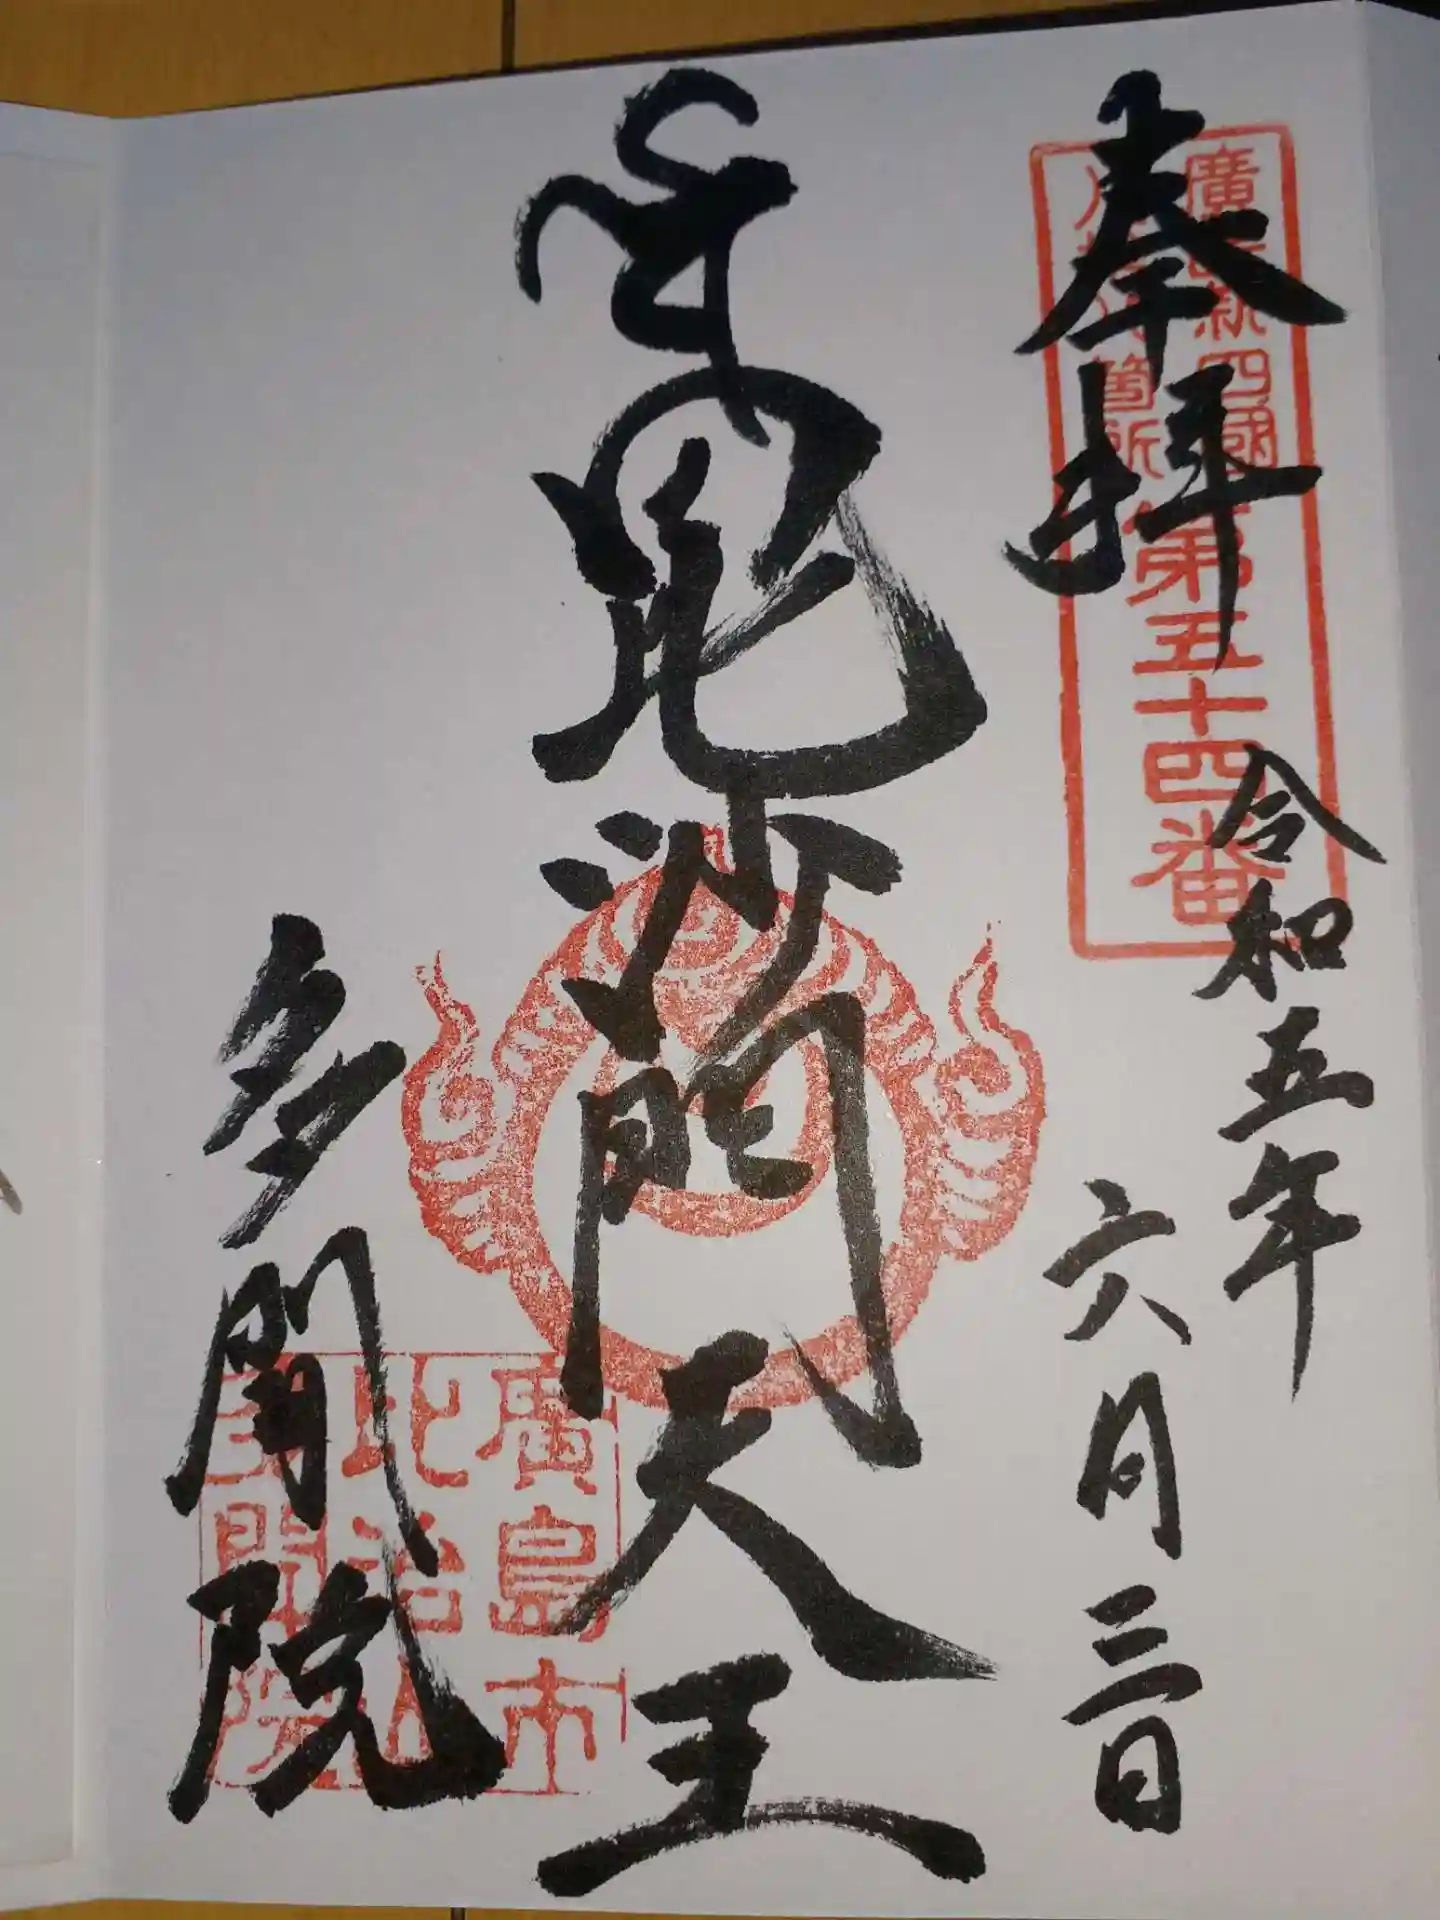 奉拝
廣島新四國
八十八箇所
第五十四番
令和五年
六月三日
毘沙門天王
廣島市
比治山
多聞院
多聞院